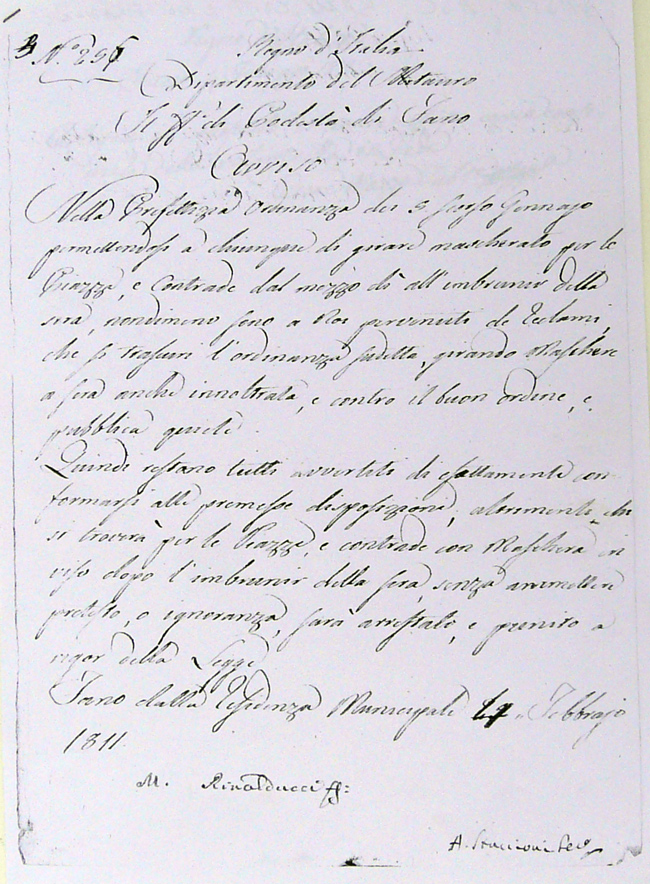 N.º 256 Regno d'Italia
Dipartimento del Metauro
Il ff. di Podestà di Fano
Avviso
Nella Prefettizia Ordinanza dei 5 scorso Gennajo
permettendosi a chiunque di girare mascherato per le
Piazze, e Contrade dal mezzo dì all'imbrunir della
sera, nondimeno sono a Noi pervenuti de reclami,
che si trascuri l'ordinanza sudetta, girando Maschere
a sera anche innoltrata, e contro il buon ordine, e
pubblica quiete.
Quindi restano tutti avvertiti di esattamente con
formarsi alle premesse disposizione, altrimenti chi
si troverà per le Piazze, e contrade con Maschera in
viso dopo l'imbrunir della sera, senza ammettere
pretesto, o ignoranza, sarà arrestato, e punito a
rigor della Legge
Fano dalla Residenza Municipale Febbrajo
1811.
M. Rinalducci ff:
A. Stuccioni Seg